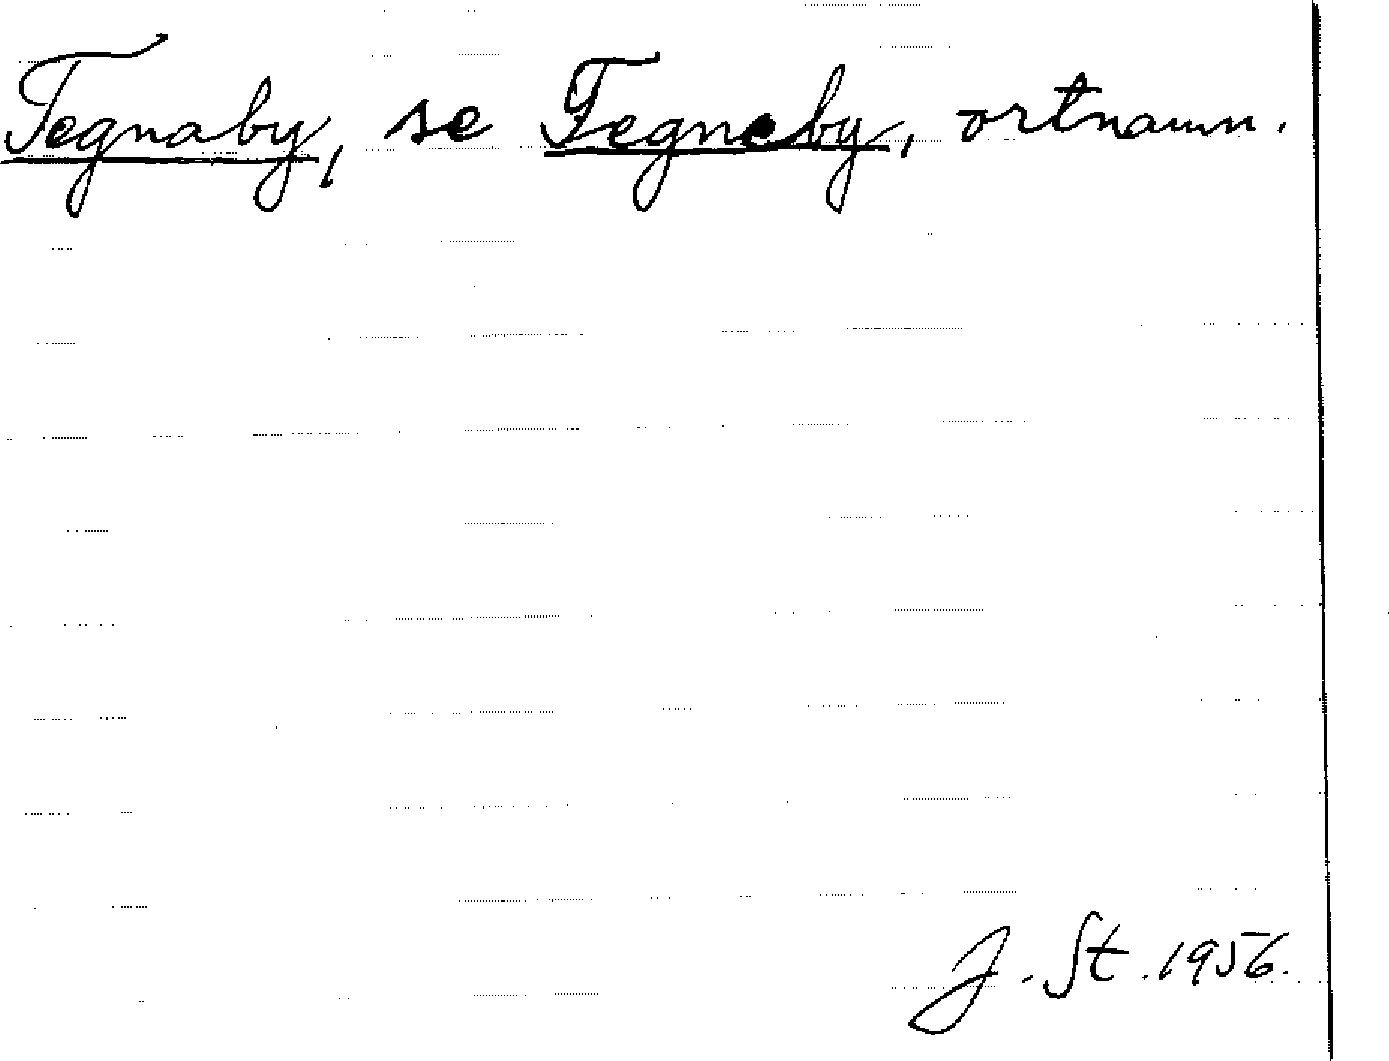 Tegnaby, se Tegneby, ortnamn.
J. St. 1956.